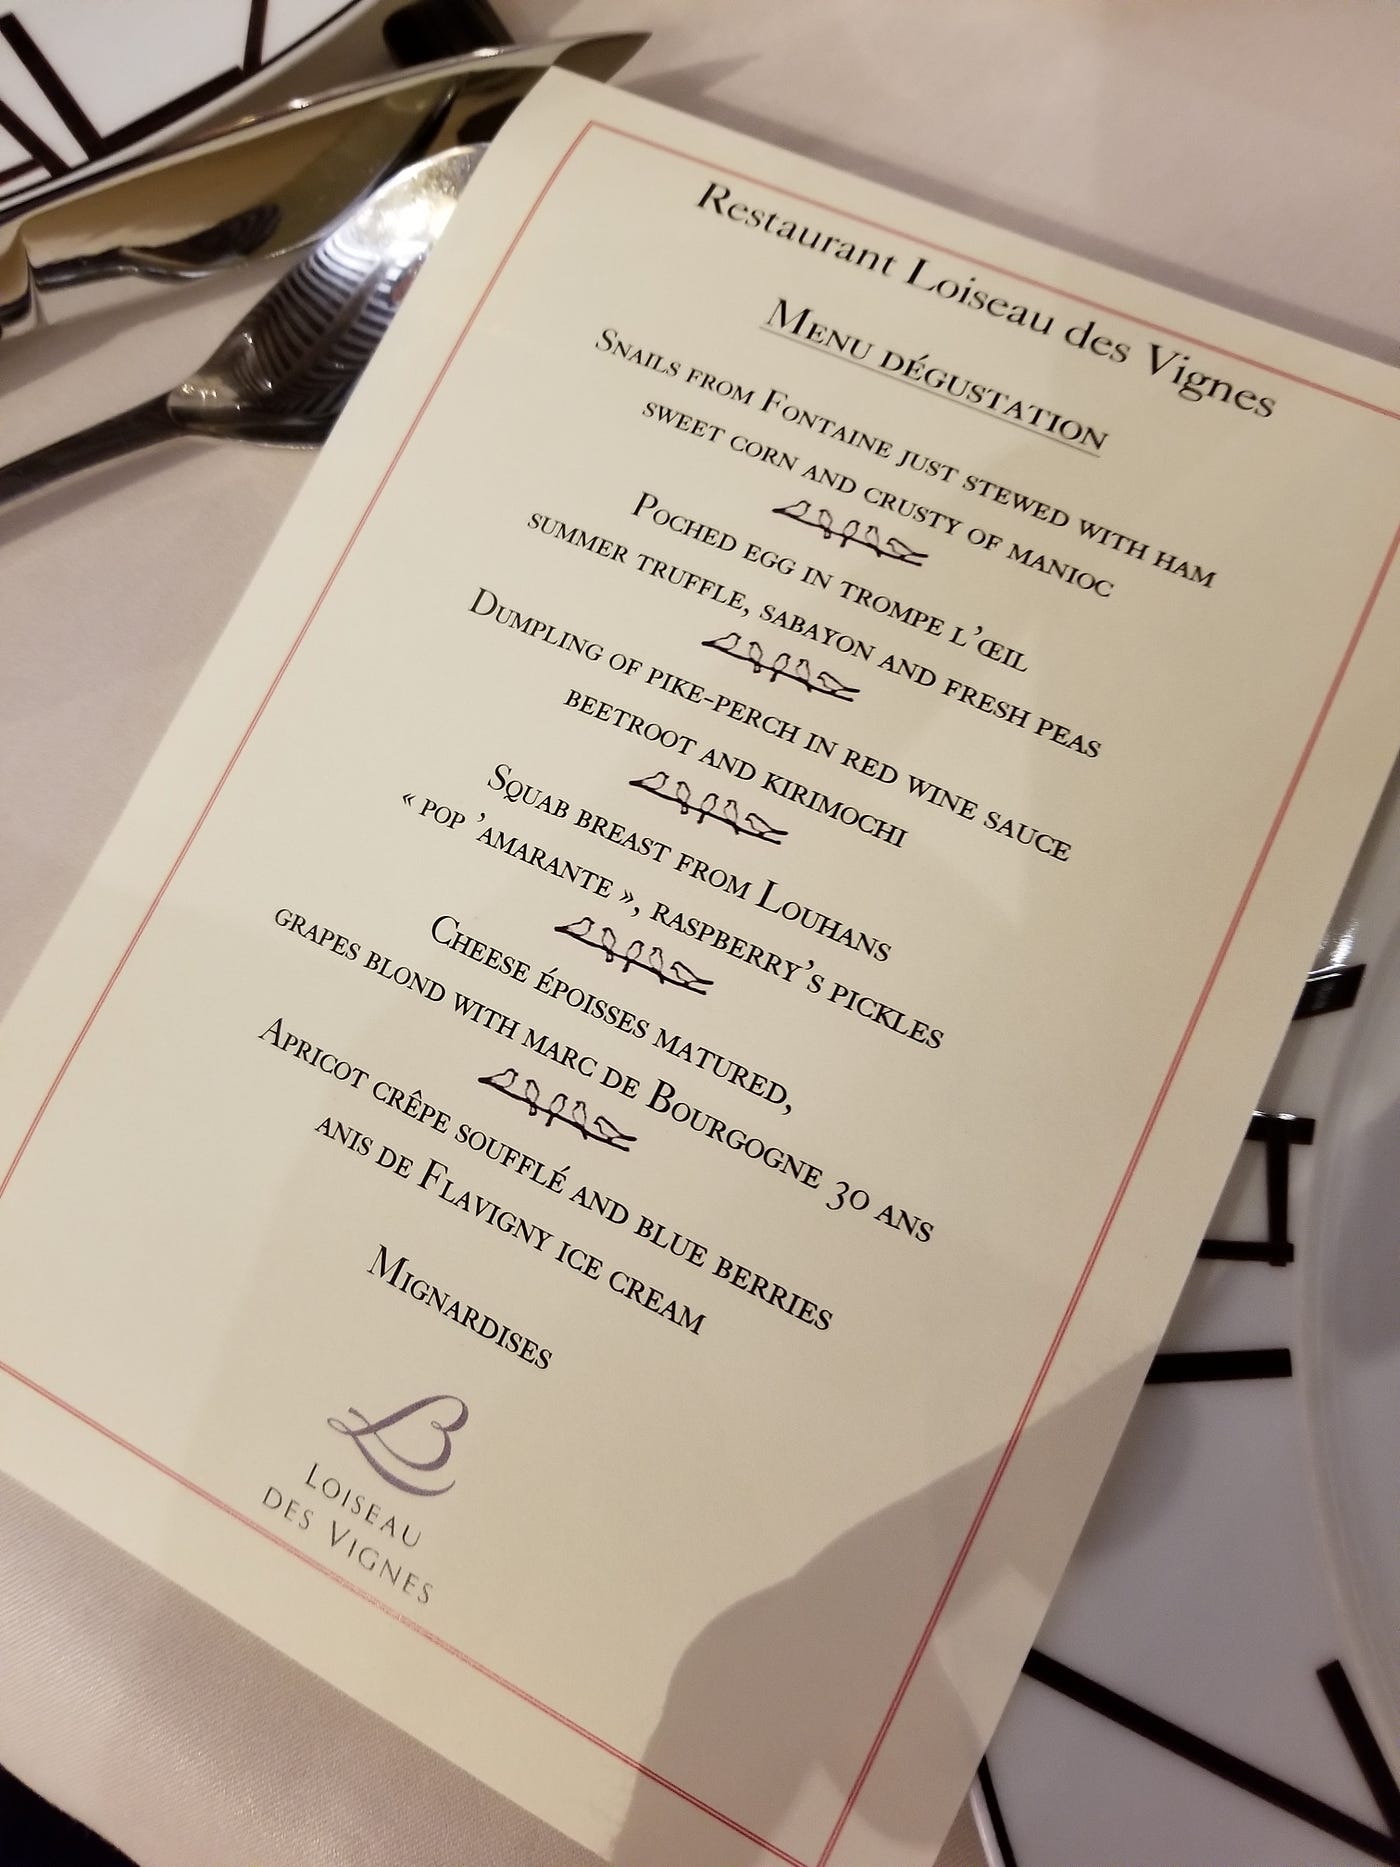 Restaurant Loiseau des Vignes
Menu dégustation
Snails from Fontaine just stewed with ham
sweet corn and crusty of manioc
Poched egg in trompe l'œil
summer truffle, sabayon and fresh peas
Dumpling of pike-perch in red wine sauce
beetroot and kirimochi
Squab breast from Louhans
« pop 'amarante », raspberry's pickles
Cheese époisses matured,
grapes blond with marc de Bourgogne 30 ans
Apricot crêpe soufflé and blue berries
anis de Flavigny ice cream
Mignardises
LB
Loiseau
des Vignes